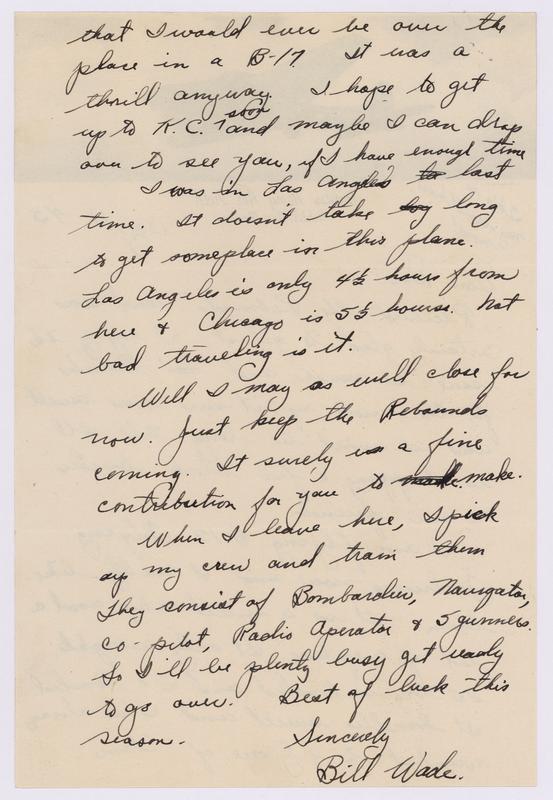 that I would ever be over the
place in a B-17. It was a
thrill anyway. I hope to get
up to K. C. soon and maybe I can drop
over to see you, if I have enough time
I was in Las Angeles last
time. It doesn't take long
to get someplace in this plane.
Las Angeles is only 4½ hours from
here & Chicago is 5½ hours. Not
bad traveling is it.
Well I may as well close for
now. Just keep the Rebounds
coming. It surely is a fine
contribution for you to make.
When I leave here, I pick
up my crew and train them
They consist of Bombardier, Navigator,
co-pilot, Radio Operator & 5 gunners.
So I'll be plenty busy get ready
to go over. Best of luck this
season. Sincerely
Bill Wade.